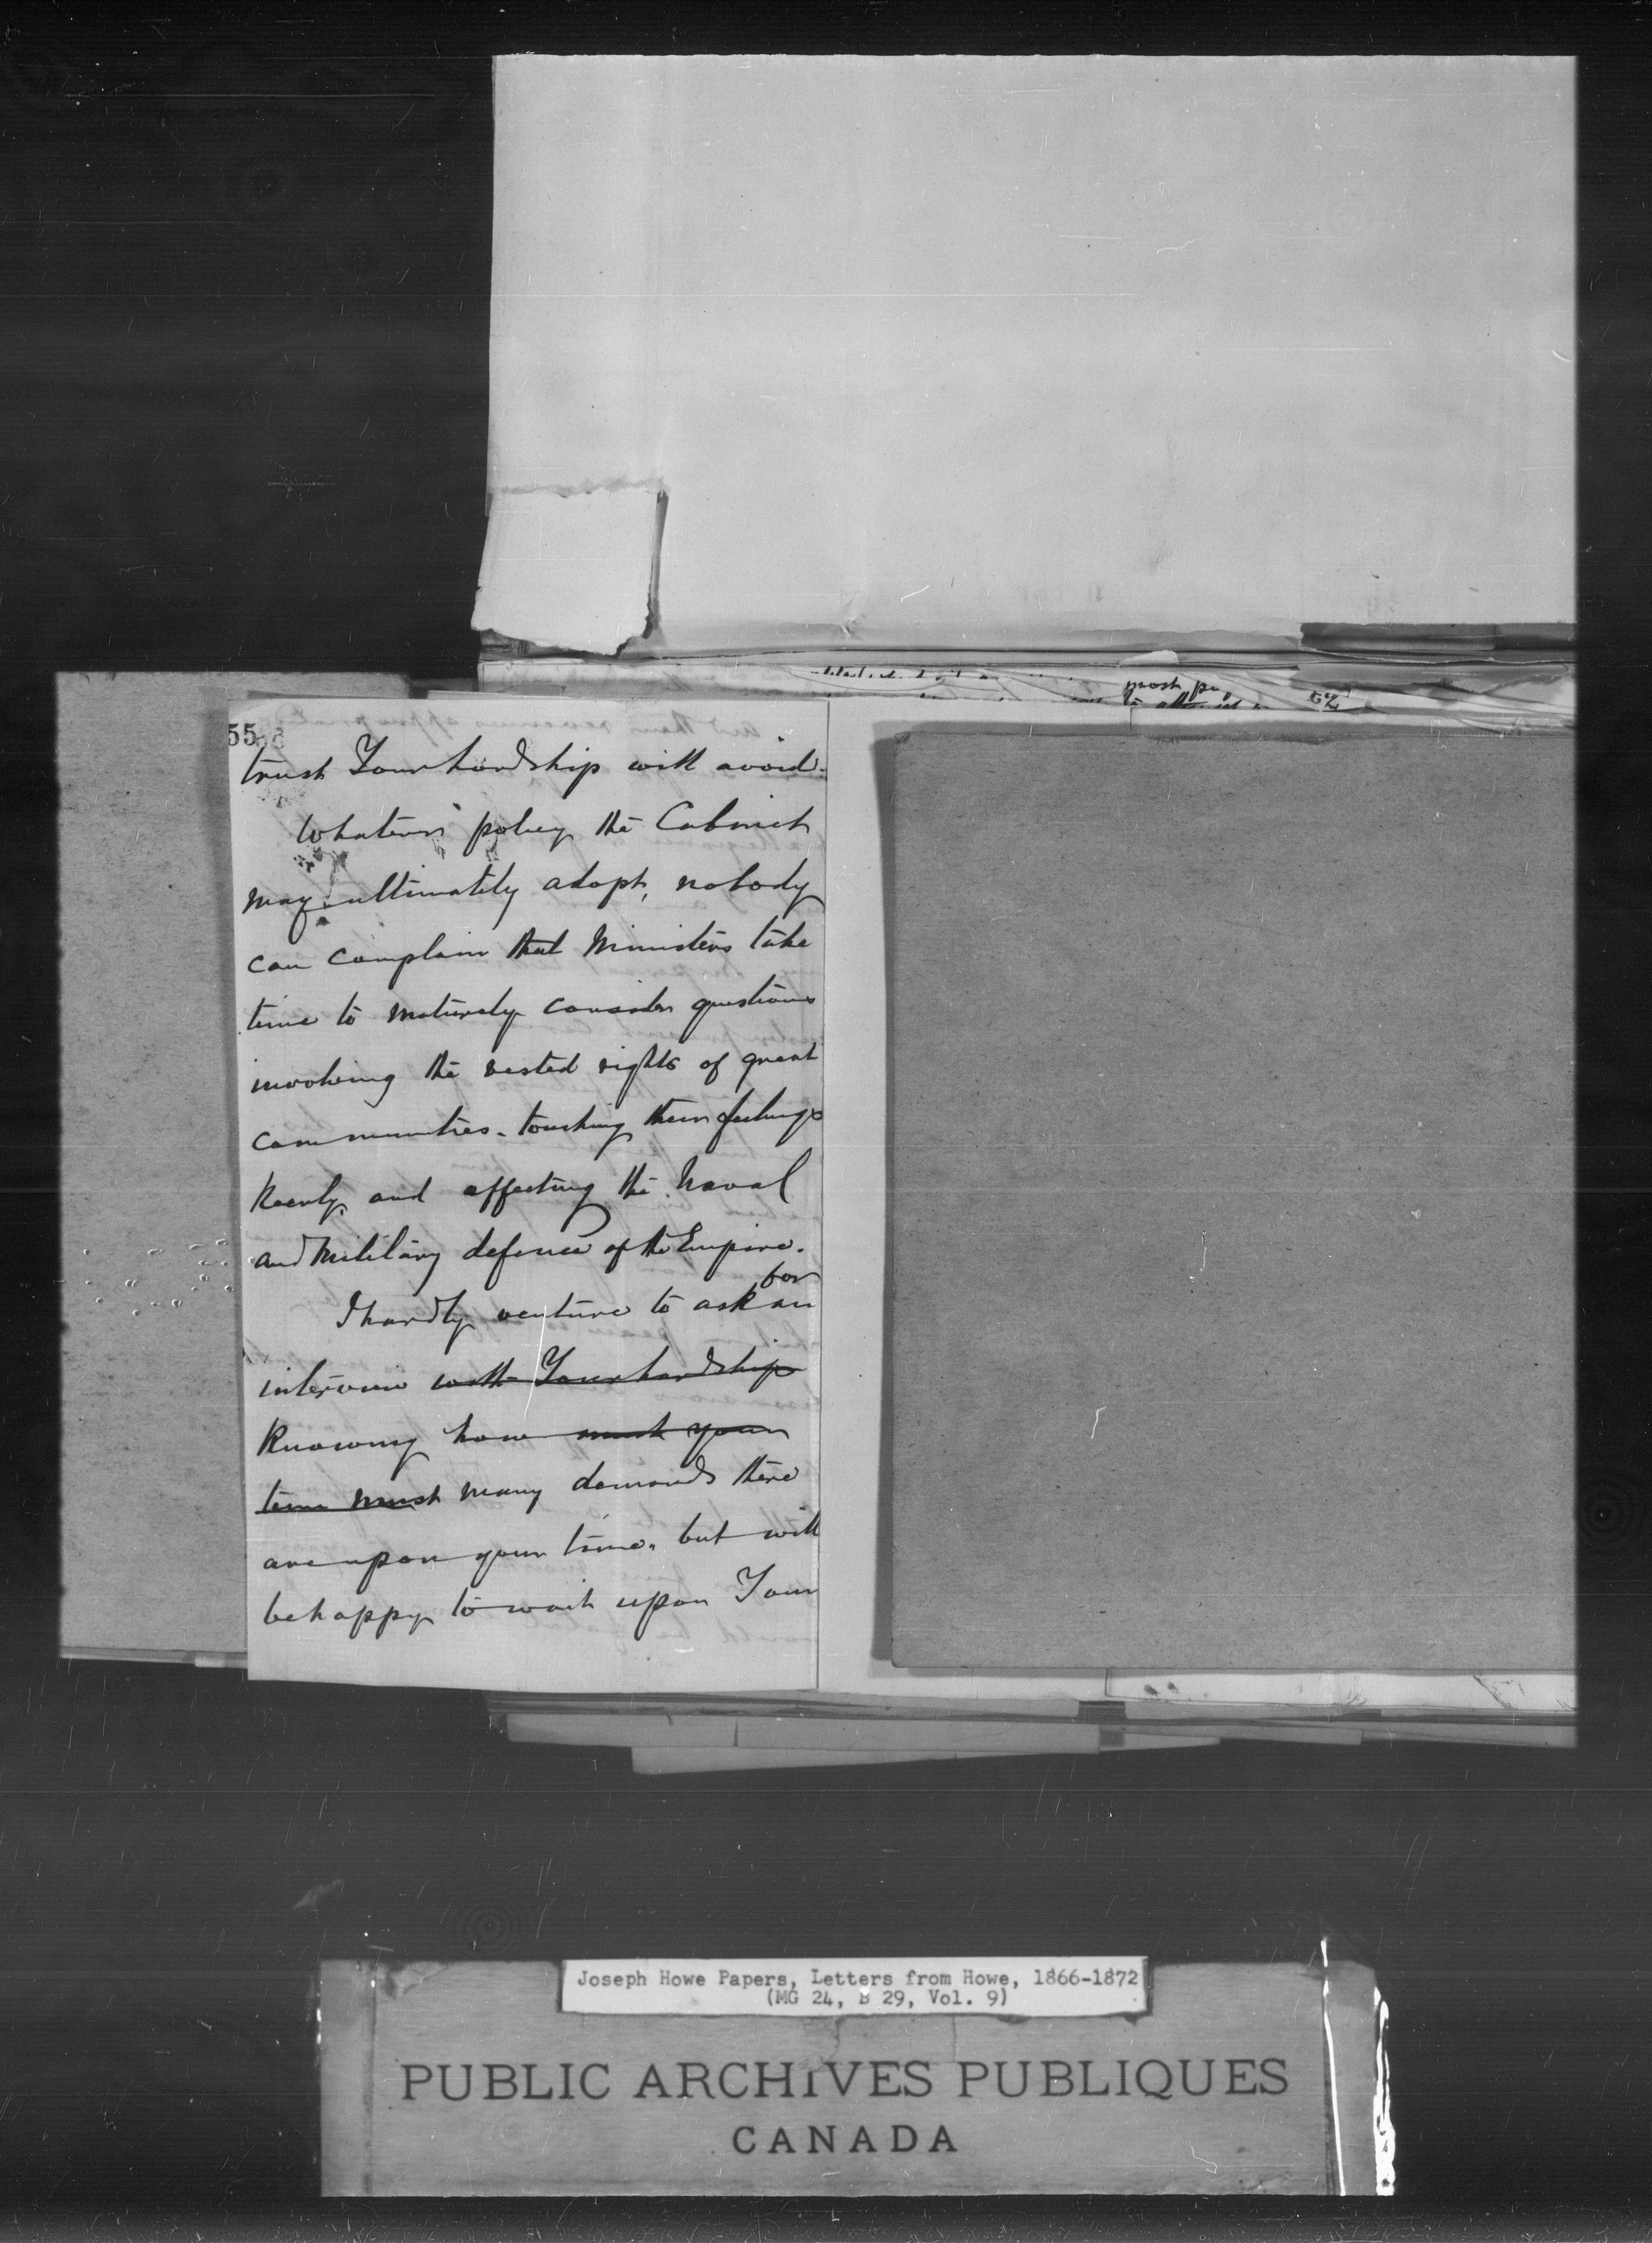 most pu
55
trust Your Lordship will avoid.
Whatever policy the Cabinet
may ultimately adopt, nobody
can complain that Ministers take
time to maturely consider questions
involving the vested rights of great
communities. touching their feelings
keenly, and affecting the Naval
and Military defence of the Empire.
for
I hardly venture to ask an
interview with Your Lordship
knowing how much your
time must many demands there
are upon your time, but will
be happy to wait upon Your
Joseph Howe Papers, Letters from Howe, 1866-1872
(MG 24, B 29, Vol. 9)
PUBLIC ARCHIVES PUBLIQUES
CANADA